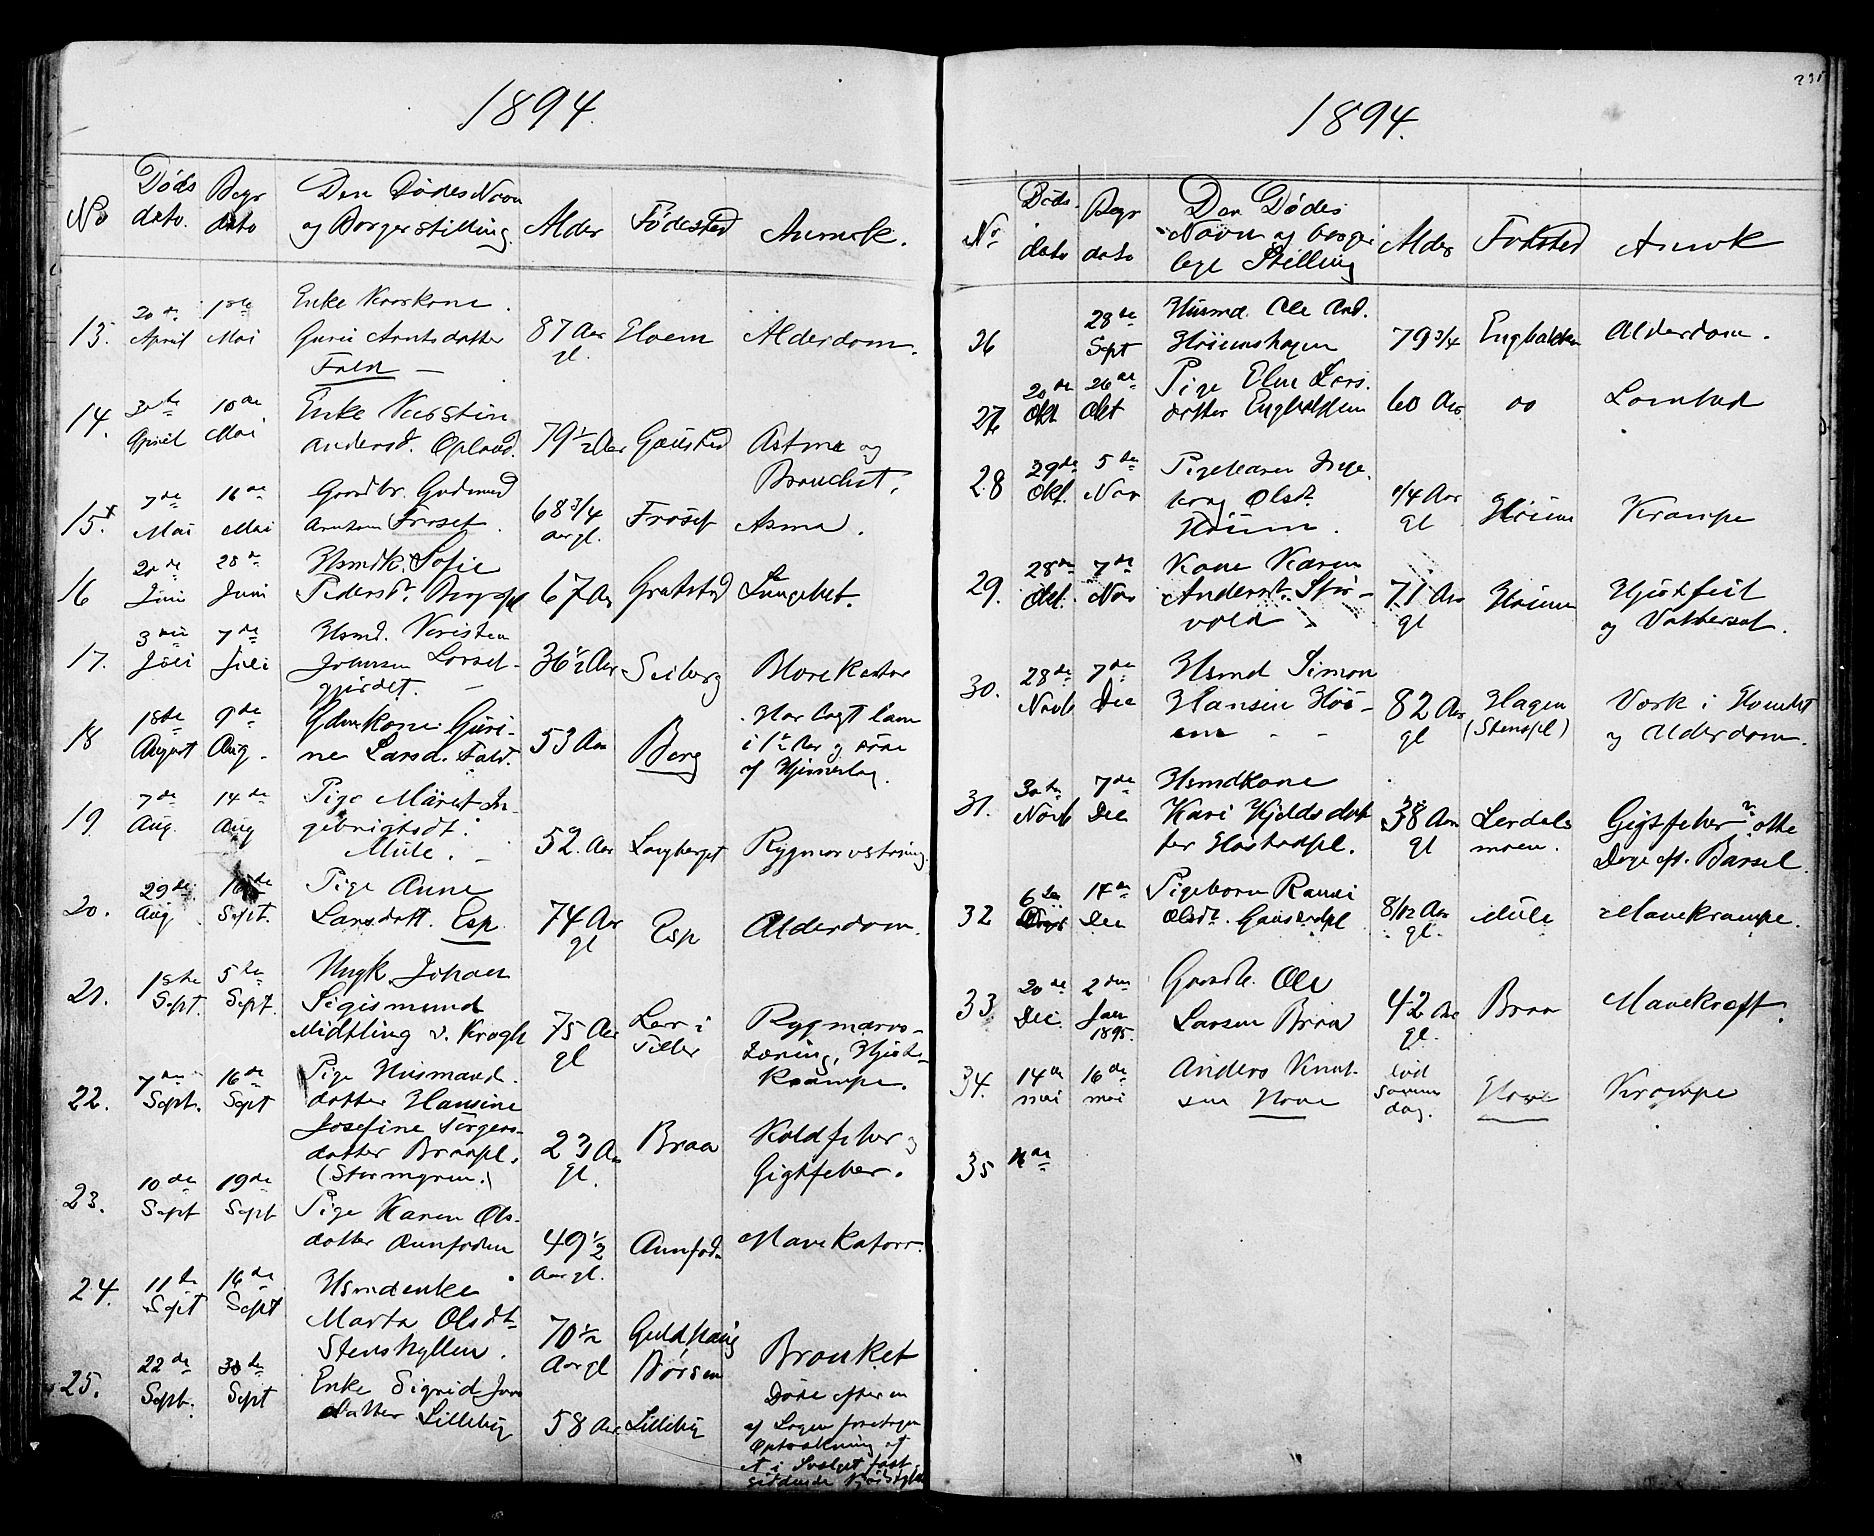 1894.
No
Døds dato.
Begr dato
Den Dødes Navn
og Borgerstilling.
Alder
Fødested
Anmerk.
13.
20de April
1ste Mai
Enke Kaarkone
Guru Arntsdatter
Fald
87 Aar gl.
Hoem
Alderdom.
14.
30te April
10de Mai
Enke Kerstin
Andersd. Opland.
79 1/2 Aar
Gaustad
Astma og
Bronchit.
15.
7de Mai
16de Mai
Gaardbr. Gudmund
Arntsen Froset.
68 3/4 Aar gl.
Froset
Asma.
16
20de Juni
28de Juni
Hsmdk. Sofie
Pedersdt.
67 Aar
Gratstad
Lungebet.
17.
3die Juli
7de Juli
Hsmd. Kristen
Johnsen Lorset-
gjerdet.
36 1/2 Aar
Seiberg
Blærekatar
18
1ste August
9de Aug.
Gdmkone Guri-
ne Larsd. Fald.
53 Aar
Berg
Har lagt lam
i 1 1/2 Aar og døde
af Hjerneslag.
19
7de Aug.
14de Aug
Pige Märet In-
gebrigtsdt.
Mule.
52. Aar
Langberget
Rygmarvstæring.
20.
29de Aug
10de Sept.
Pige Anne
Larsdatt. Esp.
74 Aar gl
Esp
Alderdom.
21.
1ste Sept.
5te Sept.
Ungk. Johan
Sigismund
Midtling v. Krogh
75 Aar gl
Leer i
Tiller
Rygmarvs-
tæring, Hjerte-
krampe.
22.
7de Sept.
16de Sept
Pige Husmand-
datter Hansine
Josefine Torgers-
datter Braapl.
(Stormyren.)
23 Aar gl.
Braa
Koldfeber og
Gigtfeber.
23.
10de Sept
19de Sept
Pige Karen Ols-
datter Aunfoden
49 1/2 Aar gl.
Aunfod.
Mavekatarr.
24.
11te Sept
16de Sept
Hsmdenke
Marta Olsdt.
Stenshyllen.
70 1/2 Aar gl
Guldhaug
Børsen
Bronket
25.
22de Sept.
30te Sept
Enke Sigrid Jons
datter Lilleby
58 Aar
Lilleby
Døde efter en
af Lægen foretagen
Optrækning af
et i Svælget fast-
siddende
1894.
No
Døds. dato
Begr dato
Den Dødes
Navn og borger
lige Stilling
Alder
Fødested
Anmk
26
28de Sept
Husmd. Ole And.
Høiumshagen
79 3/4
Engbalden
Alderdom.
27
20de Okt
26de Okt
Pige Elen Lars.
datter
60 Aar
oo
Lamhed
28
29de Okt.
5te Nov
Pigebarn Inge-
borg Olsdt.
Høium.
1/4 Aar gl
Høium
Krampe
29.
28de Okt.
7de Nov
Kone Karen
Andersdt. Stør-
vold
71 Aar gl
Høium
Hjertfeil
og Vattersot.
30.
28de Novb
7de Dec
Hsmd Simon
Hansen Høi-
em
82 Aar gl
Hagen
(Stenspl)
Værk i Hovedet
og Alderdom.
31.
30te Novb
7de Dec
Hsmdkone
Kari Kjeldsdat
ter
38 Aar gl
Lerdals
moen.
Gigtfeber otte
Dage eft. Barsel.
32
6te
17de Dec
Pigebarn Randi
Olsdt. Gaustadpl
8/12 Aar gl.
Mule
Mavekrampe.
33
20de Dec.
2den Jan 1895.
Gaardb. Ole
Larsen Braa
42 Aar gl.
Braa
Mavekræft.
34.
14de mai
16de mai
Anders Knut-
sen Hove
Hove
Krampe
35